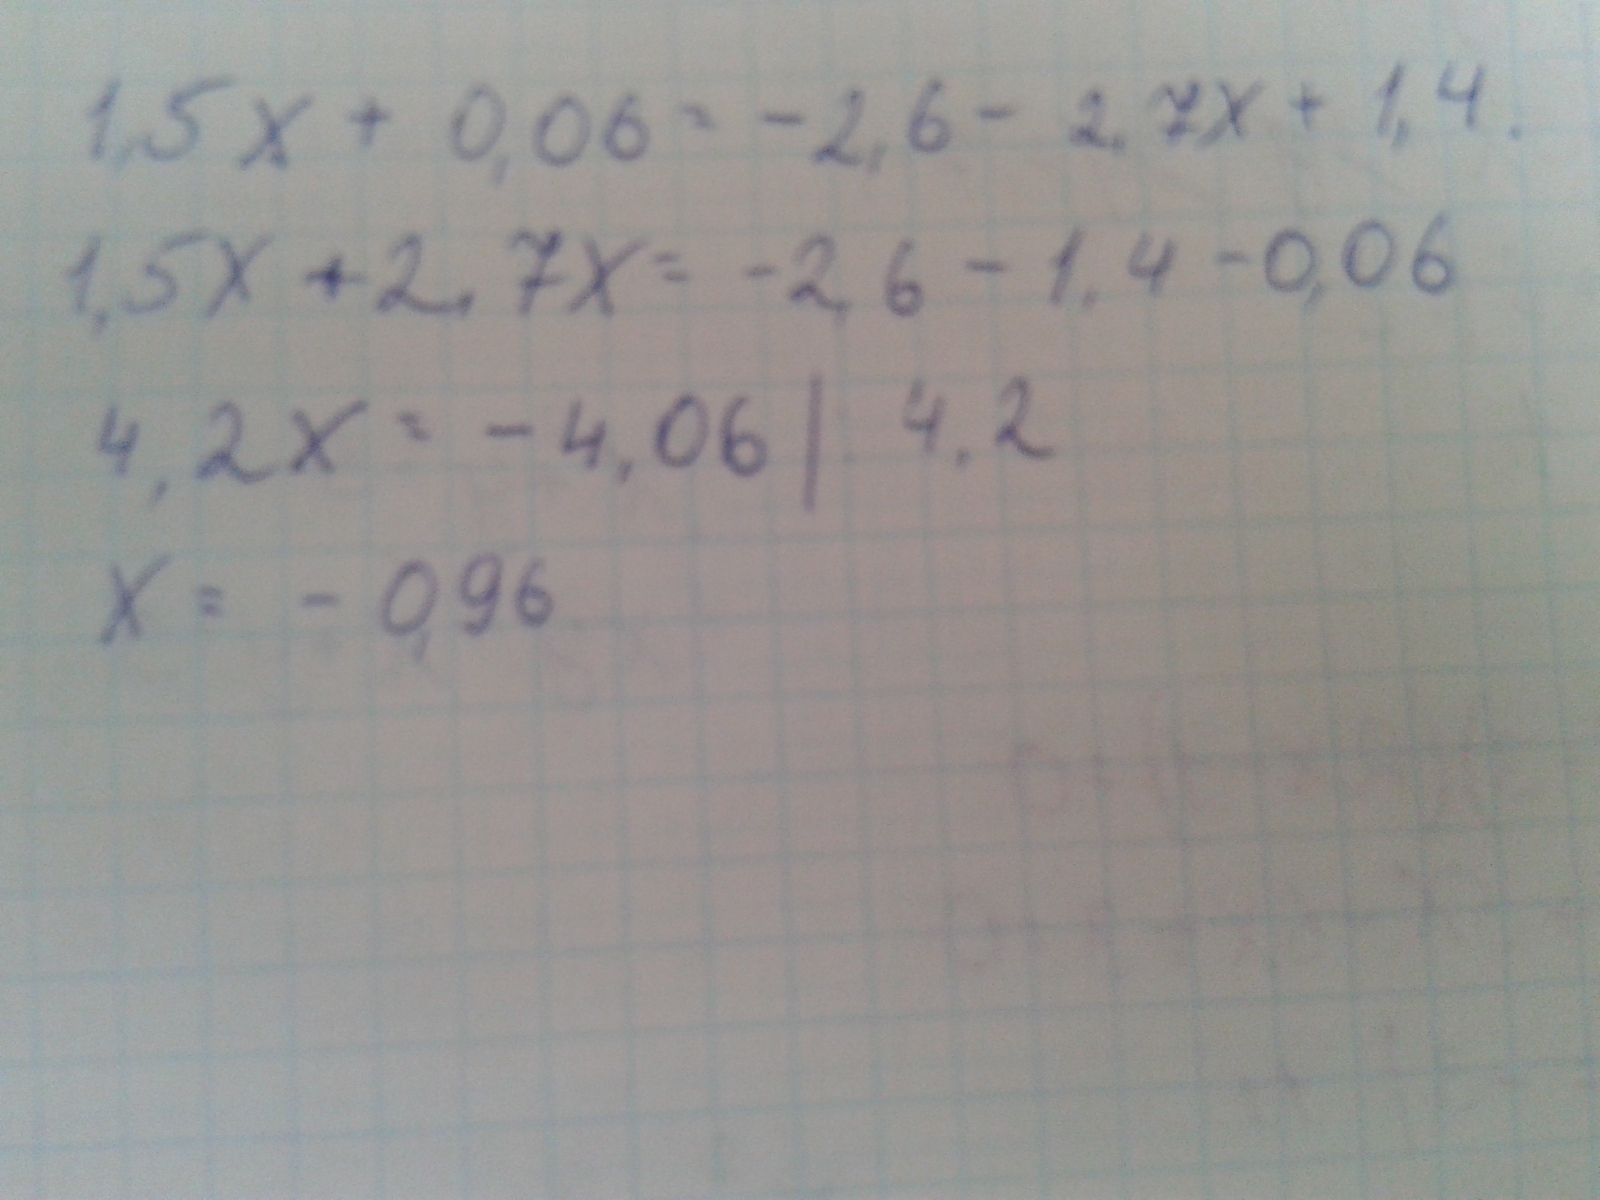 1,5x + 0,06 = -2,6 - 2,7x + 1,4.
1,5x + 2,7x = -2,6 - 1,4 - 0,06
4,2x = -4,06 | 4,2
x = -0,96